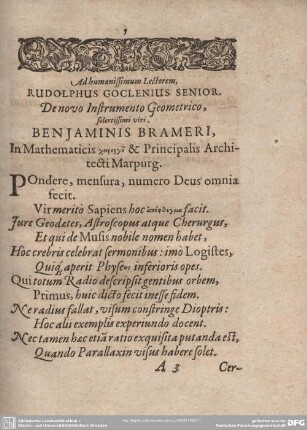 Ad humanissimum Lectorem,
RUDOLPHUS GOCLENIUS SENIOR,
De novo Instrumento Geometrico,
solertissimi viri,
BENJAMINIS BRAMERI,
In Mathematicis & Principalis Archi-
tecti Marpurg.
POndere, mensura, numero Deus omnia
fecit.
Vir meritò Sapiens hoc facit.
Jure Geodætes, Astroscopus atque Cherurgus,
Et qui de Musis nobile nomen habet,
Hoc crebris celebrat sermonibus: imò Logistes,
Quiq; aperit Physews inferioris opes.
Qui totum Radio descripsit gentibus orbem,
Primus, huic dicto fecit inesse fidem.
Ne radius fallat, visum constringe Dioptris:
Hoc alii exemplis experiundo docent.
Nec tamen hoc etiã ratio exquisita putanda est,
Quando Parallaxin visus habere solet.
A 3 Cer-